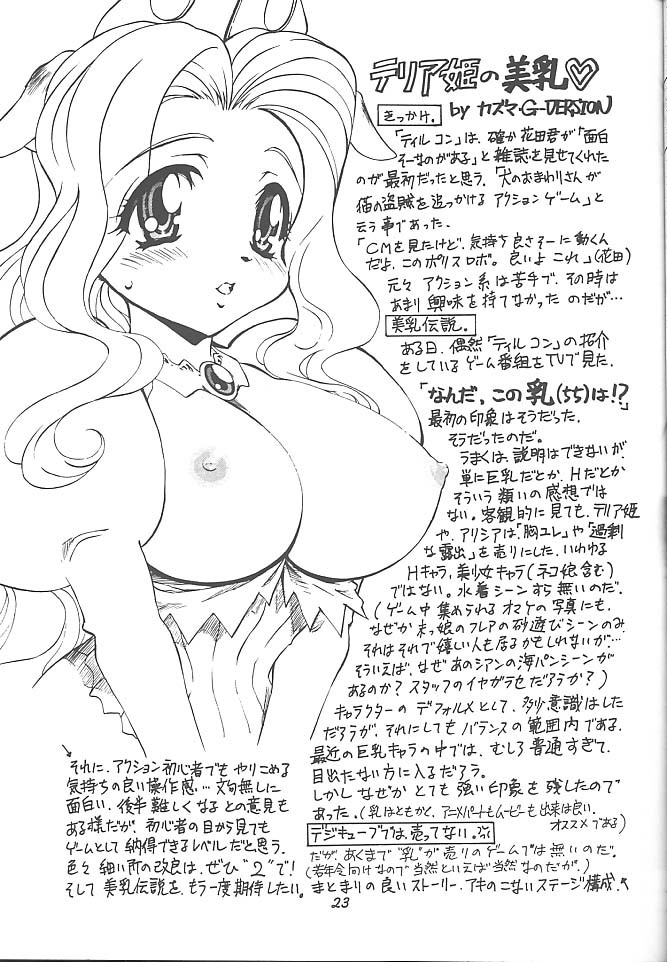 テリア姫の美乳♡
by カズマ・G-VERSION
きっかけ。
「テイルコン」は、確か花田君が「面白
そーなのがある」と雑誌を見せてくれた
のが最初だったと思う。「犬のおまわりさんが
猫の盗賊を追っかけるアクションゲーム」と
云う事であった。
「CMを見たけど、気持ち良さそーに動くん
だよ、このポリスロボ。良いよこれ」(花田)
元々アクション系は苦手で、その時は
あまり興味を持てなかったのだが…
美乳伝説。
ある日、偶然「テイルコン」の紹介
をしているゲーム番組をTVで見た。
「なんだ、この乳(ちち)は!?」
最初の印象はそうだった。
そうだったのだ。
うまくは、説明はできないが、
単に巨乳だとか、Hだとか
そういう類いの感想では
ない。客観的に見ても、テリア姫
や、アリシアは「胸ユレ」や「過剰
な露出」を売りにした、いわゆる
Hキャラ、美少女キャラ(ネコ娘含む)
ではない。水着シーンすら無いのだ。
(ゲーム中集められるオマケの写真にも、
なぜか末っ娘のフレアの砂遊びシーンのみ。
それはそれで嬉しい人も居るかもしれないが…
そういえば、なぜあのシアンの海パンシーンが
あるのか?スタッフのイヤガラセだろうか?)
キャラクターのデフォルメとして、多少意識はした
だろうが、それにしてもバランスの範囲内である。
最近の巨乳キャラの中では、むしろ普通すぎて、
目立たない方に入るだろう。
しかしなぜかとても強い印象を残したので
あった。(乳はともかく、アニメパートもムービーも出来は良い。
オススメである)
デジキューブでは売ってない。
だが、あくまで“乳”が売りのゲームでは無いのだ。
(若年令向けなので当然といえば当然なのだが)
まとまりの良いストーリー、アキのこないステージ構成、
それに、アクション初心者でもやりこめる
気持ちの良い操作感…文句無しに
面白い。後半難しくなるとの意見も
ある様だが、初心者の目から見ても
ゲームとして納得できるレベルだと思う。
色々細い所の改良は、ぜひ“2”で!
そして美乳伝説を、もう一度期待したい。
23